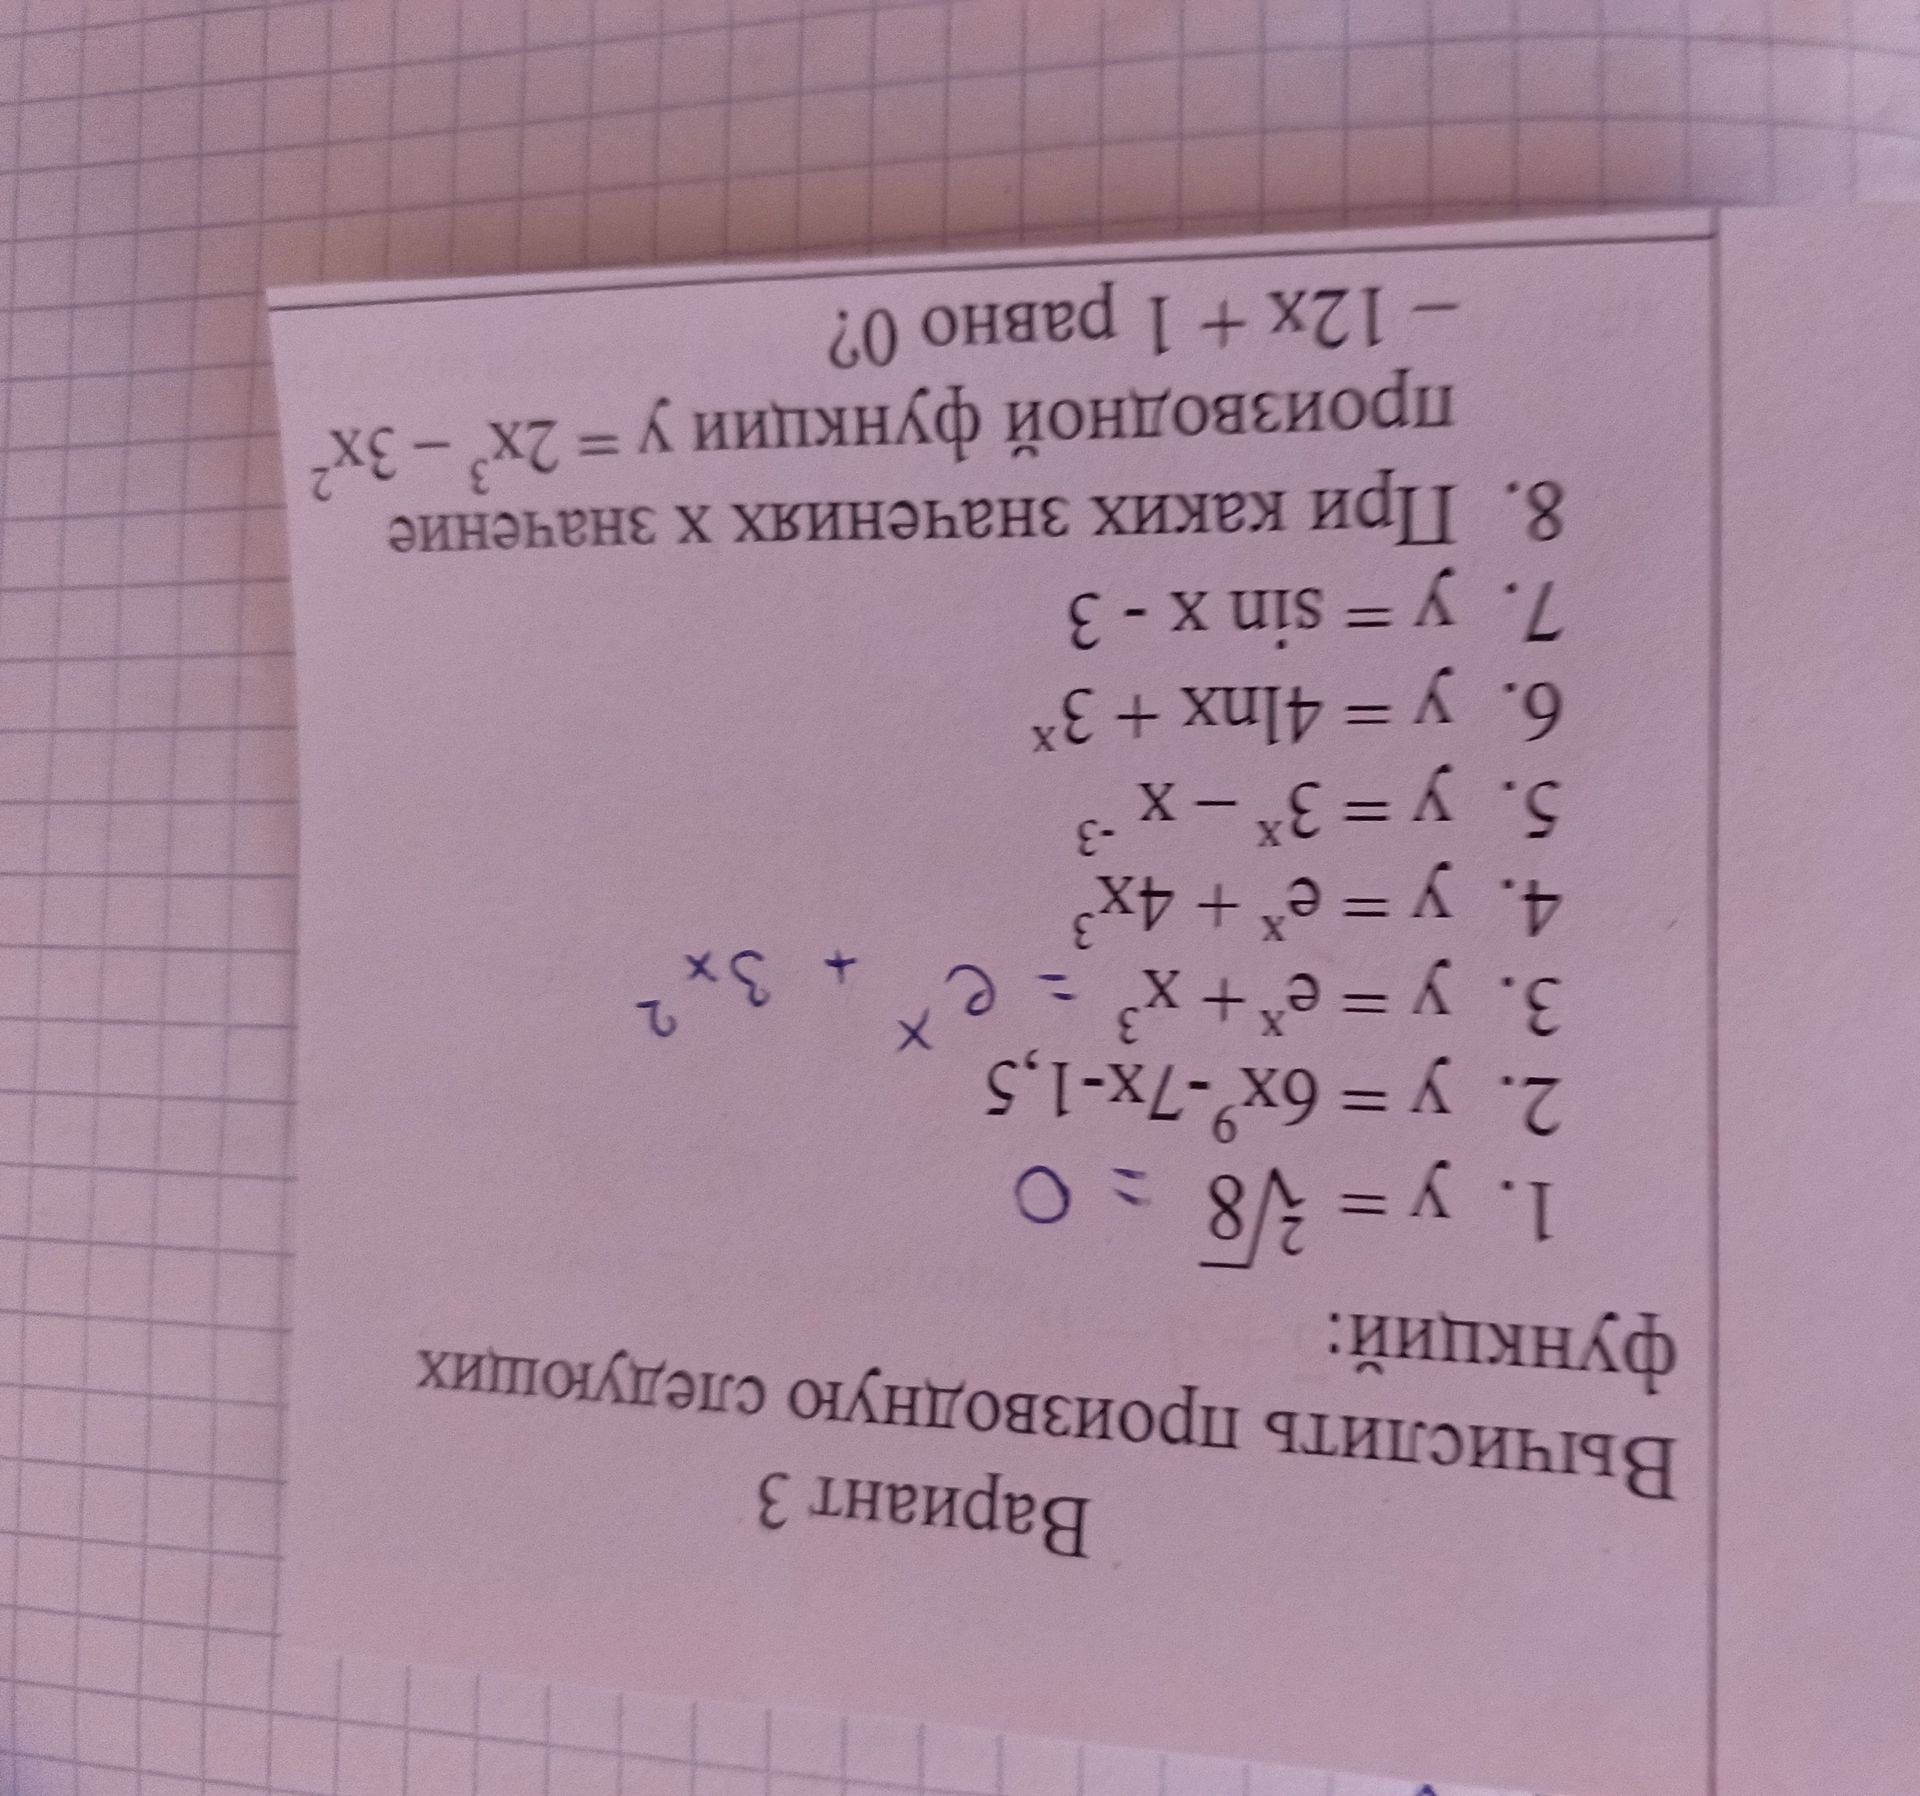 Вариант 3
Вычислить производную следующих
функций:
1. y = ²√8 = 0
2. y = 6x⁹-7x-1,5
3. y = eˣ + x³ = eˣ + 3x²
4. y = eˣ + 4x³
5. y = 3ˣ – x⁻³
6. y = 4lnx + 3ˣ
7. y = sin x - 3
8. При каких значениях x значение
производной функции y = 2x³ – 3x²
– 12x + 1 равно 0?